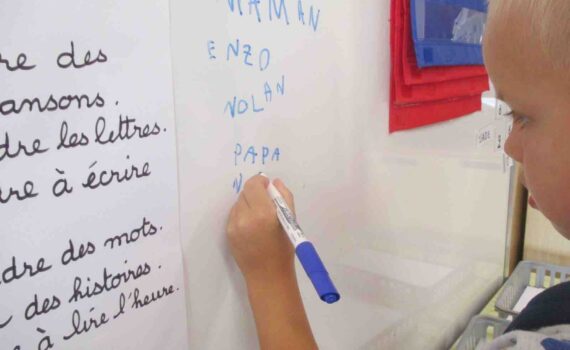 re des
ansons.
dre les lettres.
re à écrire
dre des mots.
des histoires.
à lire l'heure.
MAMAN
ENZO
NOLAN
PAPA
N